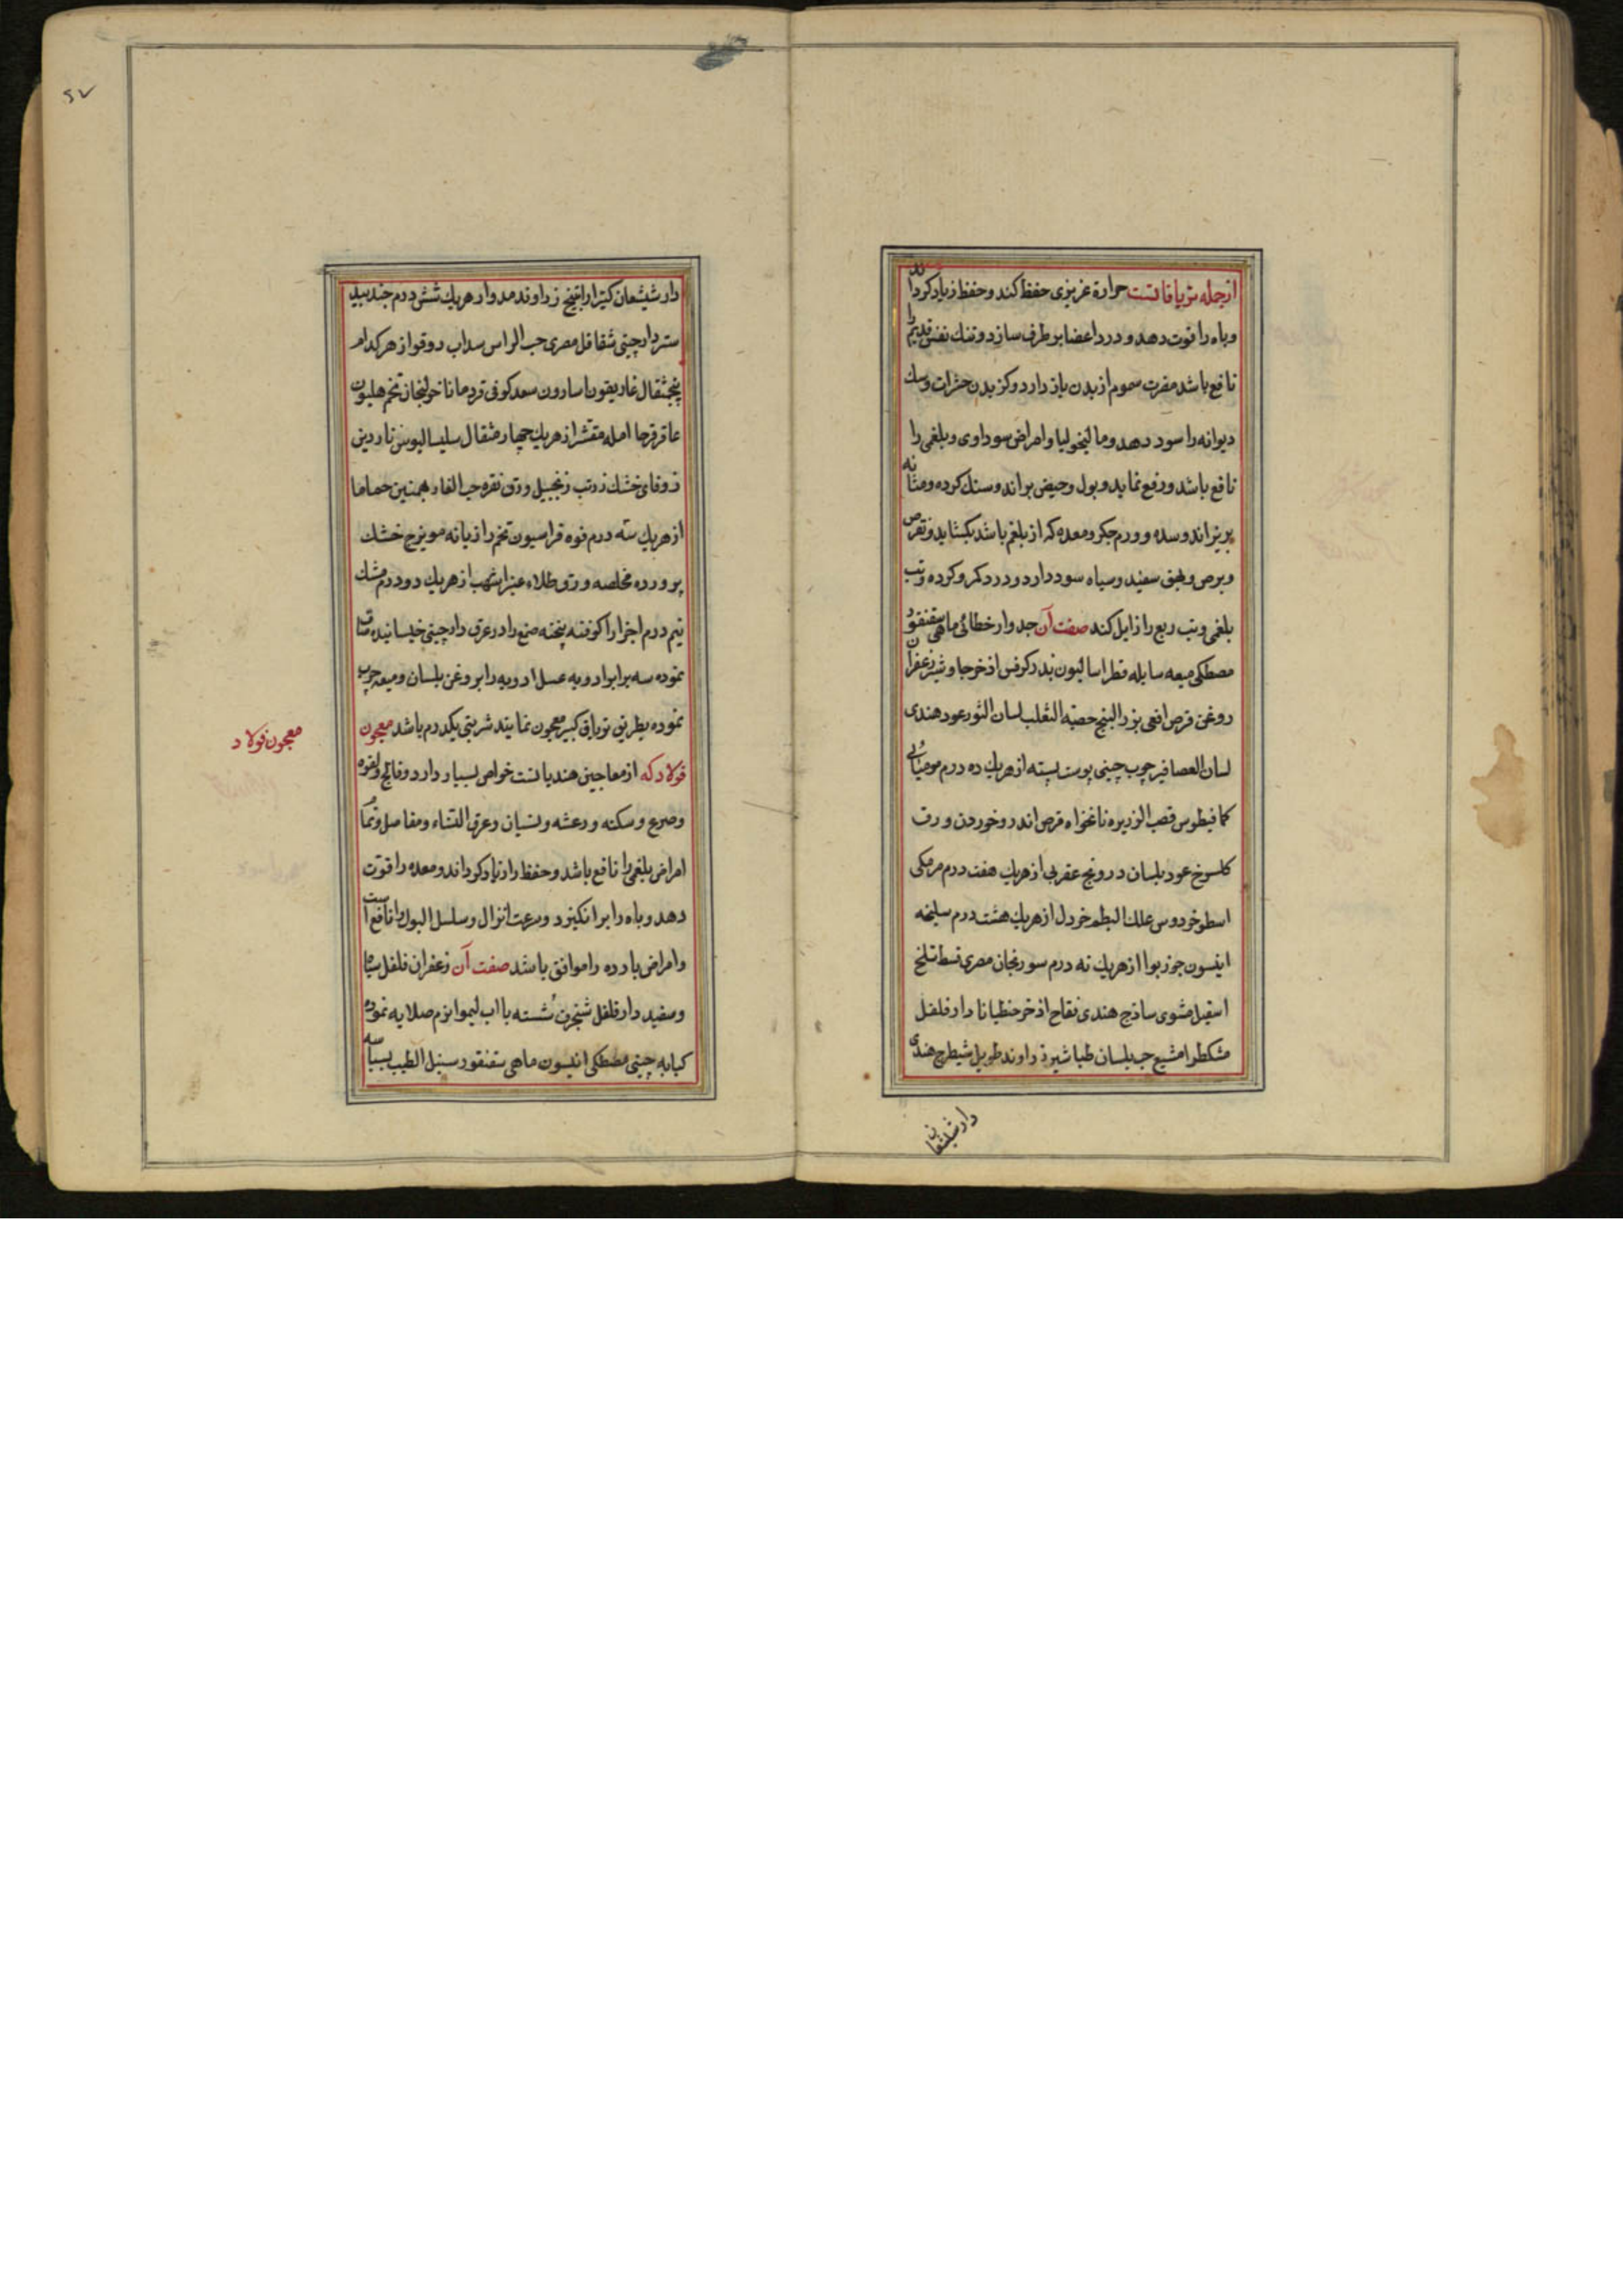 ازجمله تریاقاتست حرارة غریزی حفظ کند و حفظ زیاد کرداند
وباه را قوت دهد و درد اعضا بر طرف سازد و تنك نفس قدیم را
نافع باشد مضرت سموم از بدن باز دارد و کزیدن حشرات و سك
دیوانه را سود دهد و مالیخولیا و امراض سوداوی و بلغمی را
نافع باشد و رفع نماید و بول و حیض براند و سنك کرده و مثانه
بریزاند و سده و ورم جکر و معده که از بلغم باشد بکشاید و نقرص
و برص و بهق سفید و سیاه سود دارد و درد کمر و کرده و تب
بلغمی و تب ربع را زایل کند صفت آن جدوار خطائی ماهی سقنقور
مصطکی میعه سایله فطراسالیون بذر کرفس اذخر جاوشیر زعفران
روغن قرص افعی بزر البنج خصیة الثعلب لسان الثور عود هندی
لسان العصافیر چوب چینی پوست پسته از هریك ده درم مومیائی
کمافیطوس قصب الزریره نانخواه قرص اندروخوردن ورق
کلسرخ عود بلسان درونج عقربی از هریك هفت درم مرمکی
اسطوخودوس علك البطم خردل از هریك هشت درم سلیخه
انیسون جوز بوا از هریك نه درم سورنجان مصری قسط تلخ
اسقیل مشوی ساذج هندی فقاح اذخر جنطیانا دارفلفل
مشکطرامشیع حب بلسان طباشیر زراوند طویل شیطرج هندی
دارشیشعان
۵۷
دارشیشعان کتیرا راتینج زراوند مدور از هریك شش درم جندبید
ستر دارچینی شقاقل مصری حب الراس سداب دوقو از هرکدام
پنجمثقال غاریقون اسارون سعد کوفی قردمانا خولنجان تخم هلیون
عاقرقرحا امله مقشر از هریك چهار مثقال سلیسالیوس ناردین
زوفای خشك زرنب زنجبیل ورق نقره حب الغار بهمنین حماما
از هریك سه درم فوه فراسیون تخم رازیانه مویزج خشك
پرورده مخلصه ورق طلاء عنبر اشهب از هریك دو درم مشك
نیم درم اجزا را کوفته پخته صمغ را در عرق دارچینی خیسانیده صاف
نموده سه برابر ادویه عسل ادویه را بروغن بلسان و میعه چرب
نموده بطریق تریاق کبیر معجون نمایند شربتی یکدرم باشد معجون
فولاد که از معاجین هندیانست خواص بسیار دارد و فالج و لقوه
و صرع و سکته و رعشه و نسیان و عرق النساء و مفاصل و تمام
امراض بلغمی را نافع باشد و حفظ را زیاد کرداند و معده را قوت
دهد و باه را برانکیزد و سرعت انزال و سلسل البول را نافع است
و امراض بارده را موافق باشد صفت آن زعفران فلفل سیاه
و سفید دارفلفل شنجرف شسته با اب لیموا نرم صلایه نموده
کبابه چینی مصطکی انیسون ماهی سقنقور سنبل الطیب بسباسه
معجون فولاد